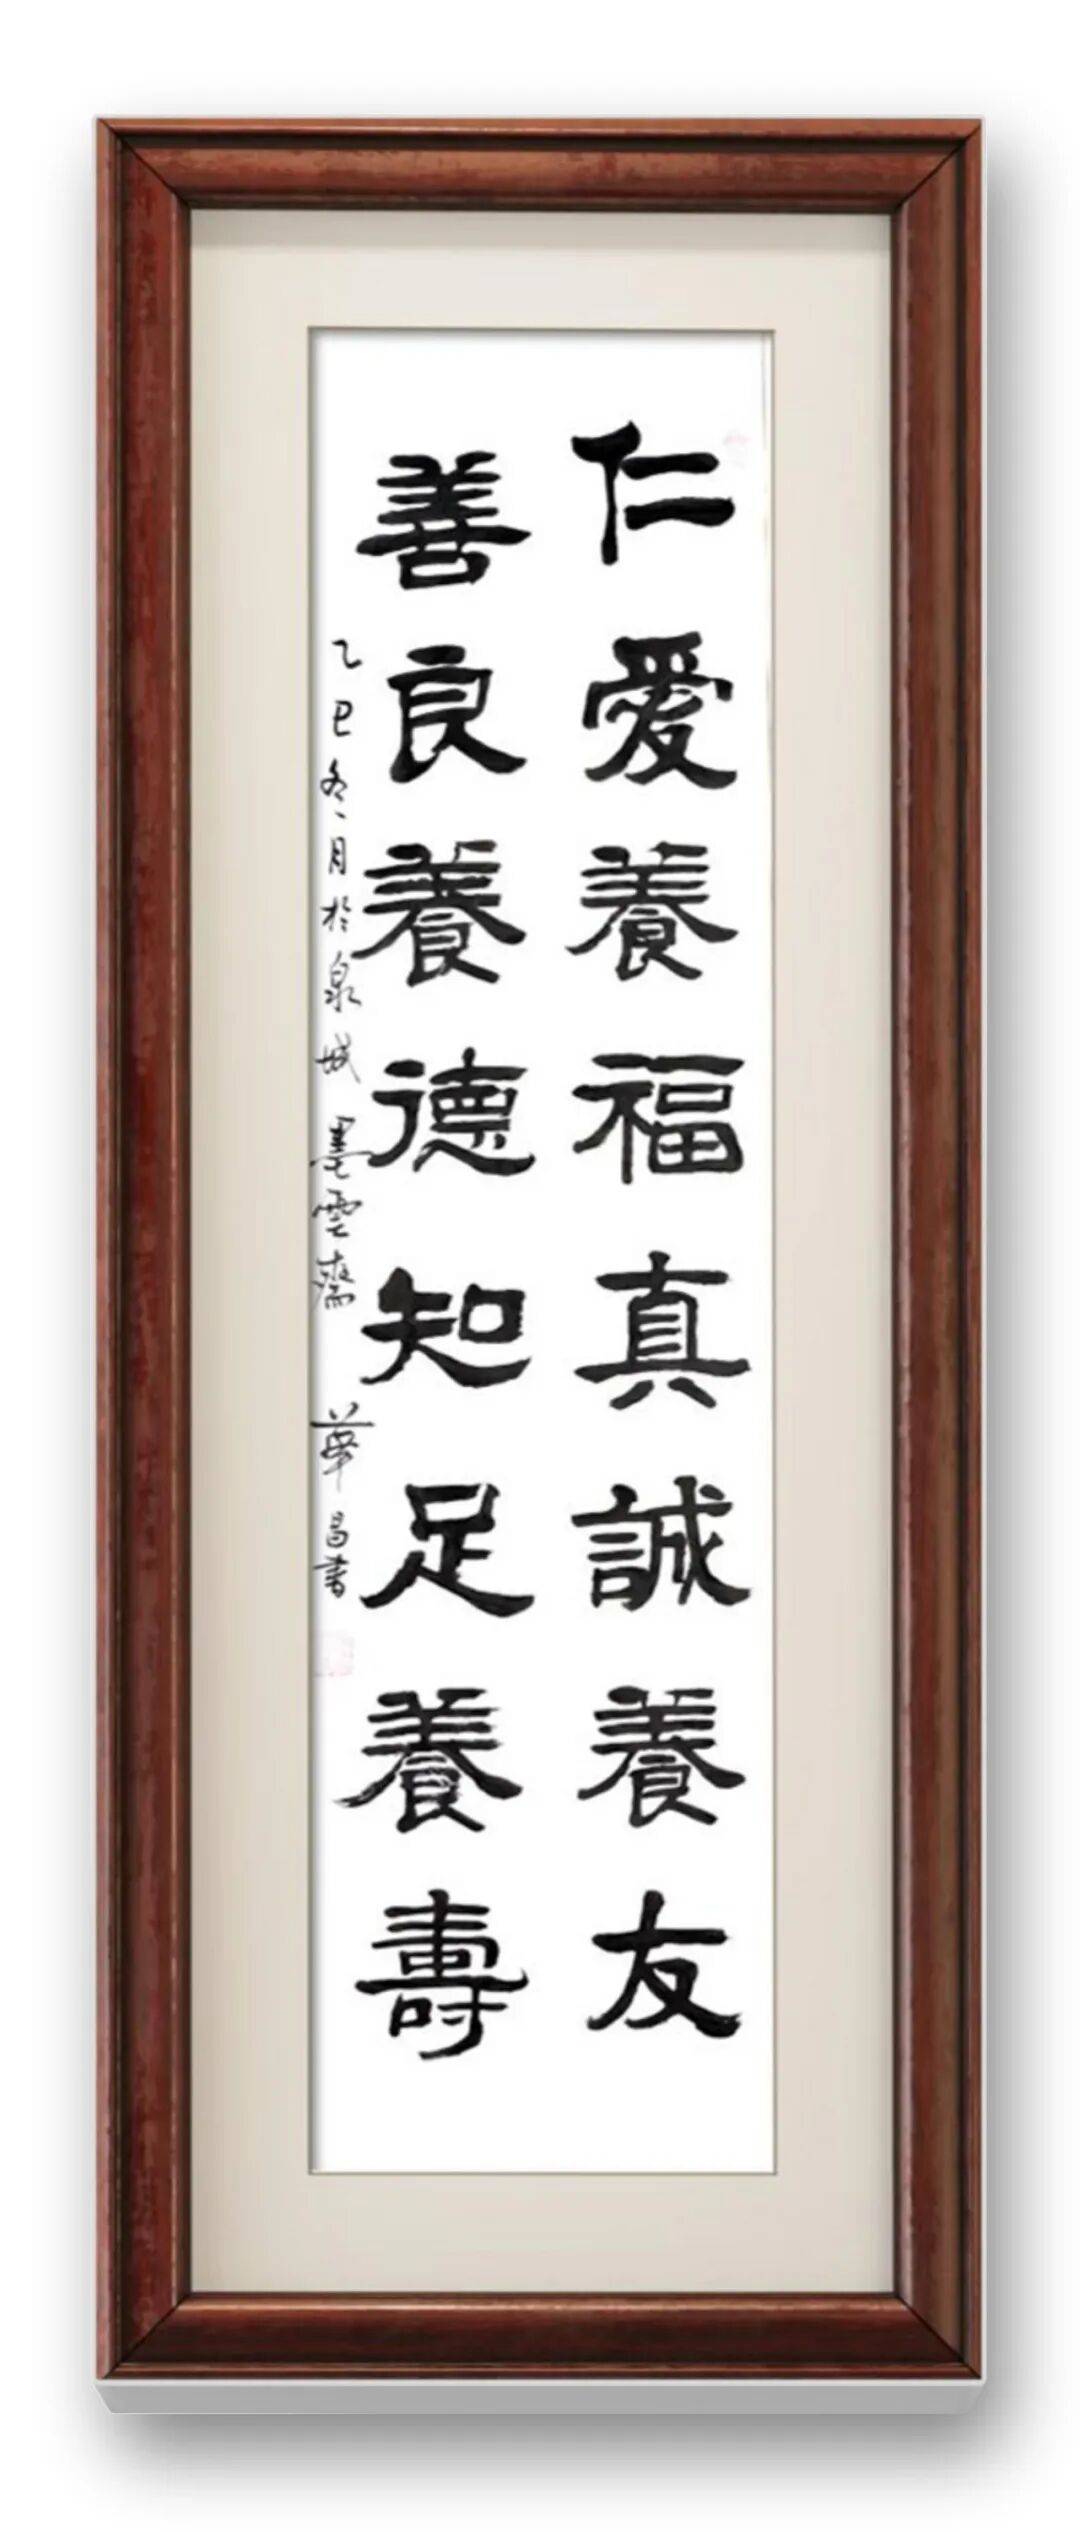 仁愛養福真誠養友
善良養德知足養壽
乙巳冬月於泉城墨雲齋華昌書